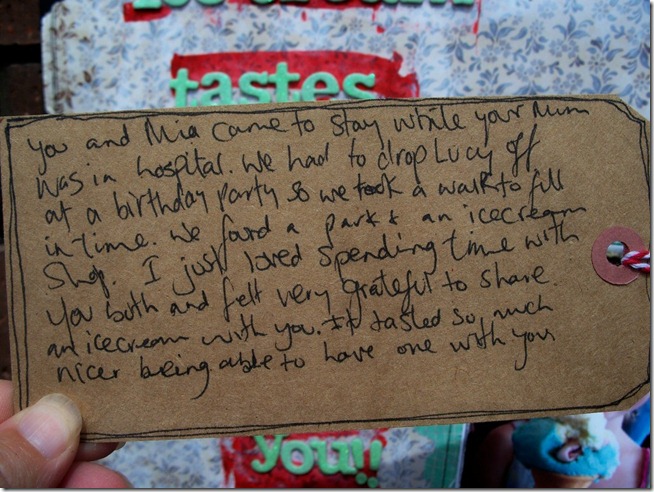 Ice cream
tastes
You and Mia came to stay while your Mum
was in hospital. We had to drop Lucy off
at a birthday party so we took a walk to fill
in time. We found a park & an icecream
shop. I just loved spending time with
you both and felt very grateful to share
an icecream with you. It tasted so much
nicer being able to have one with you
you!!